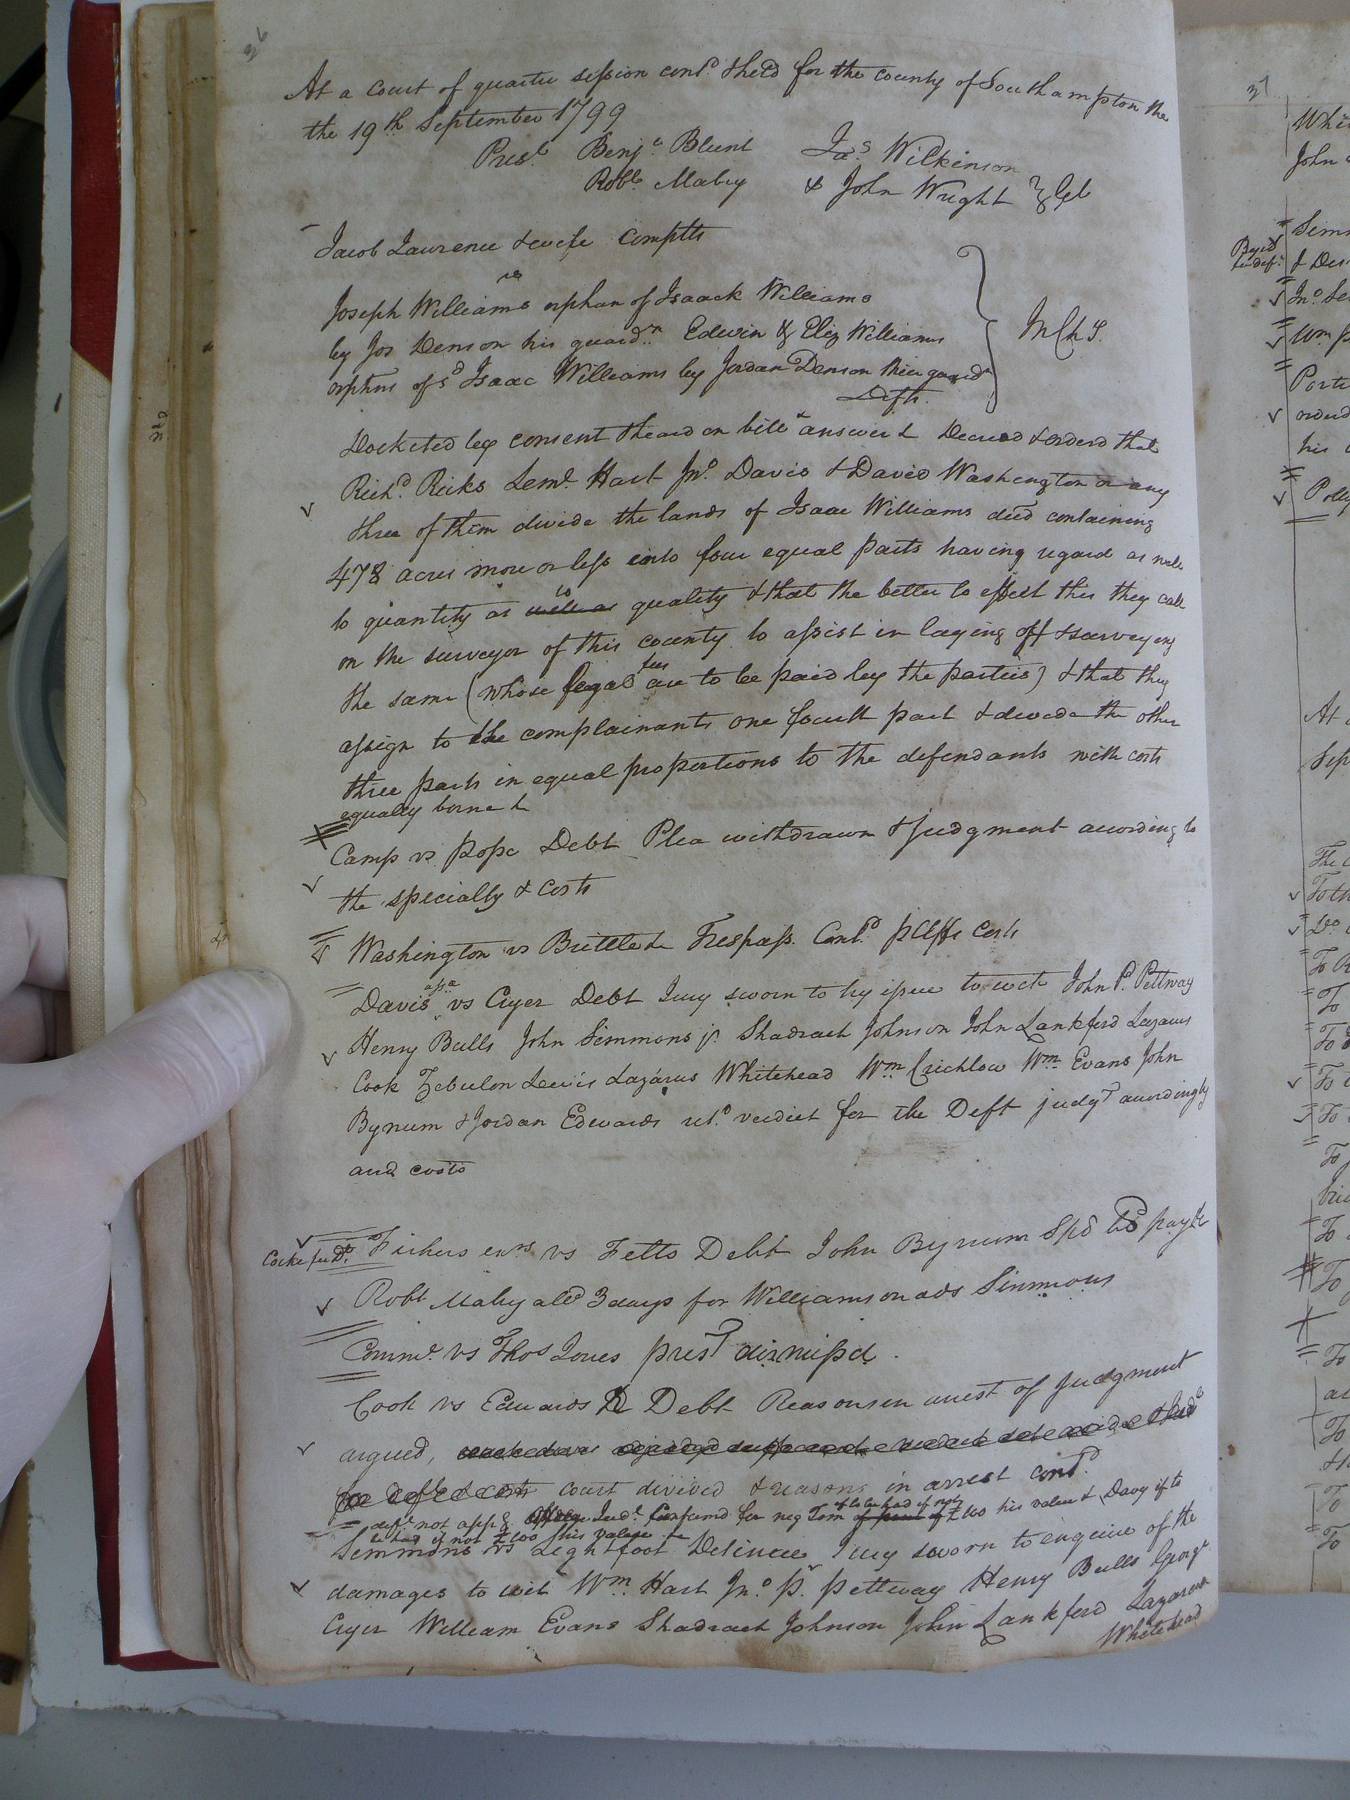 36
At a Court of quarter session cont.d & held for the county of Southampton the
the 19th September 1799
Pres.t Benj.a Blunt Jas Wilkinson
Rob.t Mabry & John Wright } Gt
Jacob Lawrence & wife Complts
vs
Joseph Williams orphan of Isaack Williams
by Jos Denson his guard.n Edwin & Eliz Williams
orphns of sd Isaac Williams by Jordan Denson their guard.n
Defts.
In Ch.y
Docketed by consent & heard on bill & answer & Decreed & orderd that
Rich.d Ricks Lem.l Hart Jn.o Davis & David Washington or any
three of them divide the lands of Isaac Williams decd containing
478 acres more or less into four equal parts having regard as well
to quantity as to quality & that the better to effect this they call
on the surveyor of this county to assist in laying off & surveying
the same (whose legal fees are to be paid by the parties) & that they
assign to the complainants one fourth part & devide the other
three parts in equal proportions to the defendants with costs
equally borne &
Camp vs Pope Debt Plea withdrawn & judgment according to
the specialty & costs
Washington vs Brittle & Trespass. Cont.d plffs costs
Davis assee vs Cryer Debt Jury sworn to try issue to wit John P. Pettway
Henry Bulls John Simmons jr. Shadrach Johnson John Lankford Lazarus
Cook Zebulon Lewis Lazarus Whitehead Wm Crichlow Wm Evans John
Bynum & Jordan Edwards ret.d verdict for the Deft judgt accordingly
and costs
Fishers exrs vs Felts Debt John Bynum Spd
Robt Mabry alld 3 days for Williamson ads Simmons
Comm.th vs Thos Jones prest dismissd.
Cook vs Edwards Debt Reasons in arrest of judgment
argued,
court divided & reasons in arrest contd.
deft not appg. Judt. Confirmd for neg Tom
be had if not £100 his value
Simmons vs Lightfoot Detinue Jury sworn to enquire of the
damages to wit Wm. Hart Jn.o P. Pettway Henry Bulls George
Cryer William Evans Shadrach Johnson John Lankford Lazarus
Whitehead
37